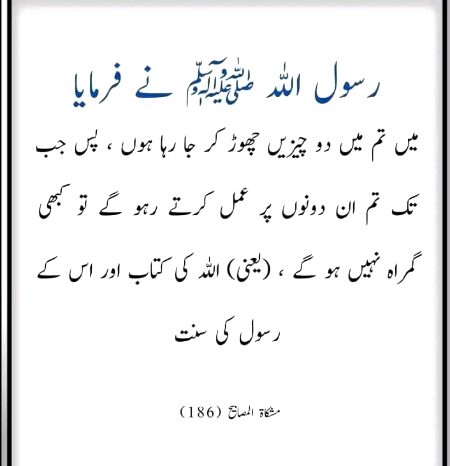 رسول اللہ ﷺ نے فرمایا
میں تم میں دو چیزیں چھوڑ کر جا رہا ہوں ، پس جب
تک تم ان دونوں پر عمل کرتے رہو گے تو کبھی
گمراہ نہیں ہو گے ، (یعنی) اللہ کی کتاب اور اس کے
رسول کی سنت
مشکاۃ المصابیح (186)